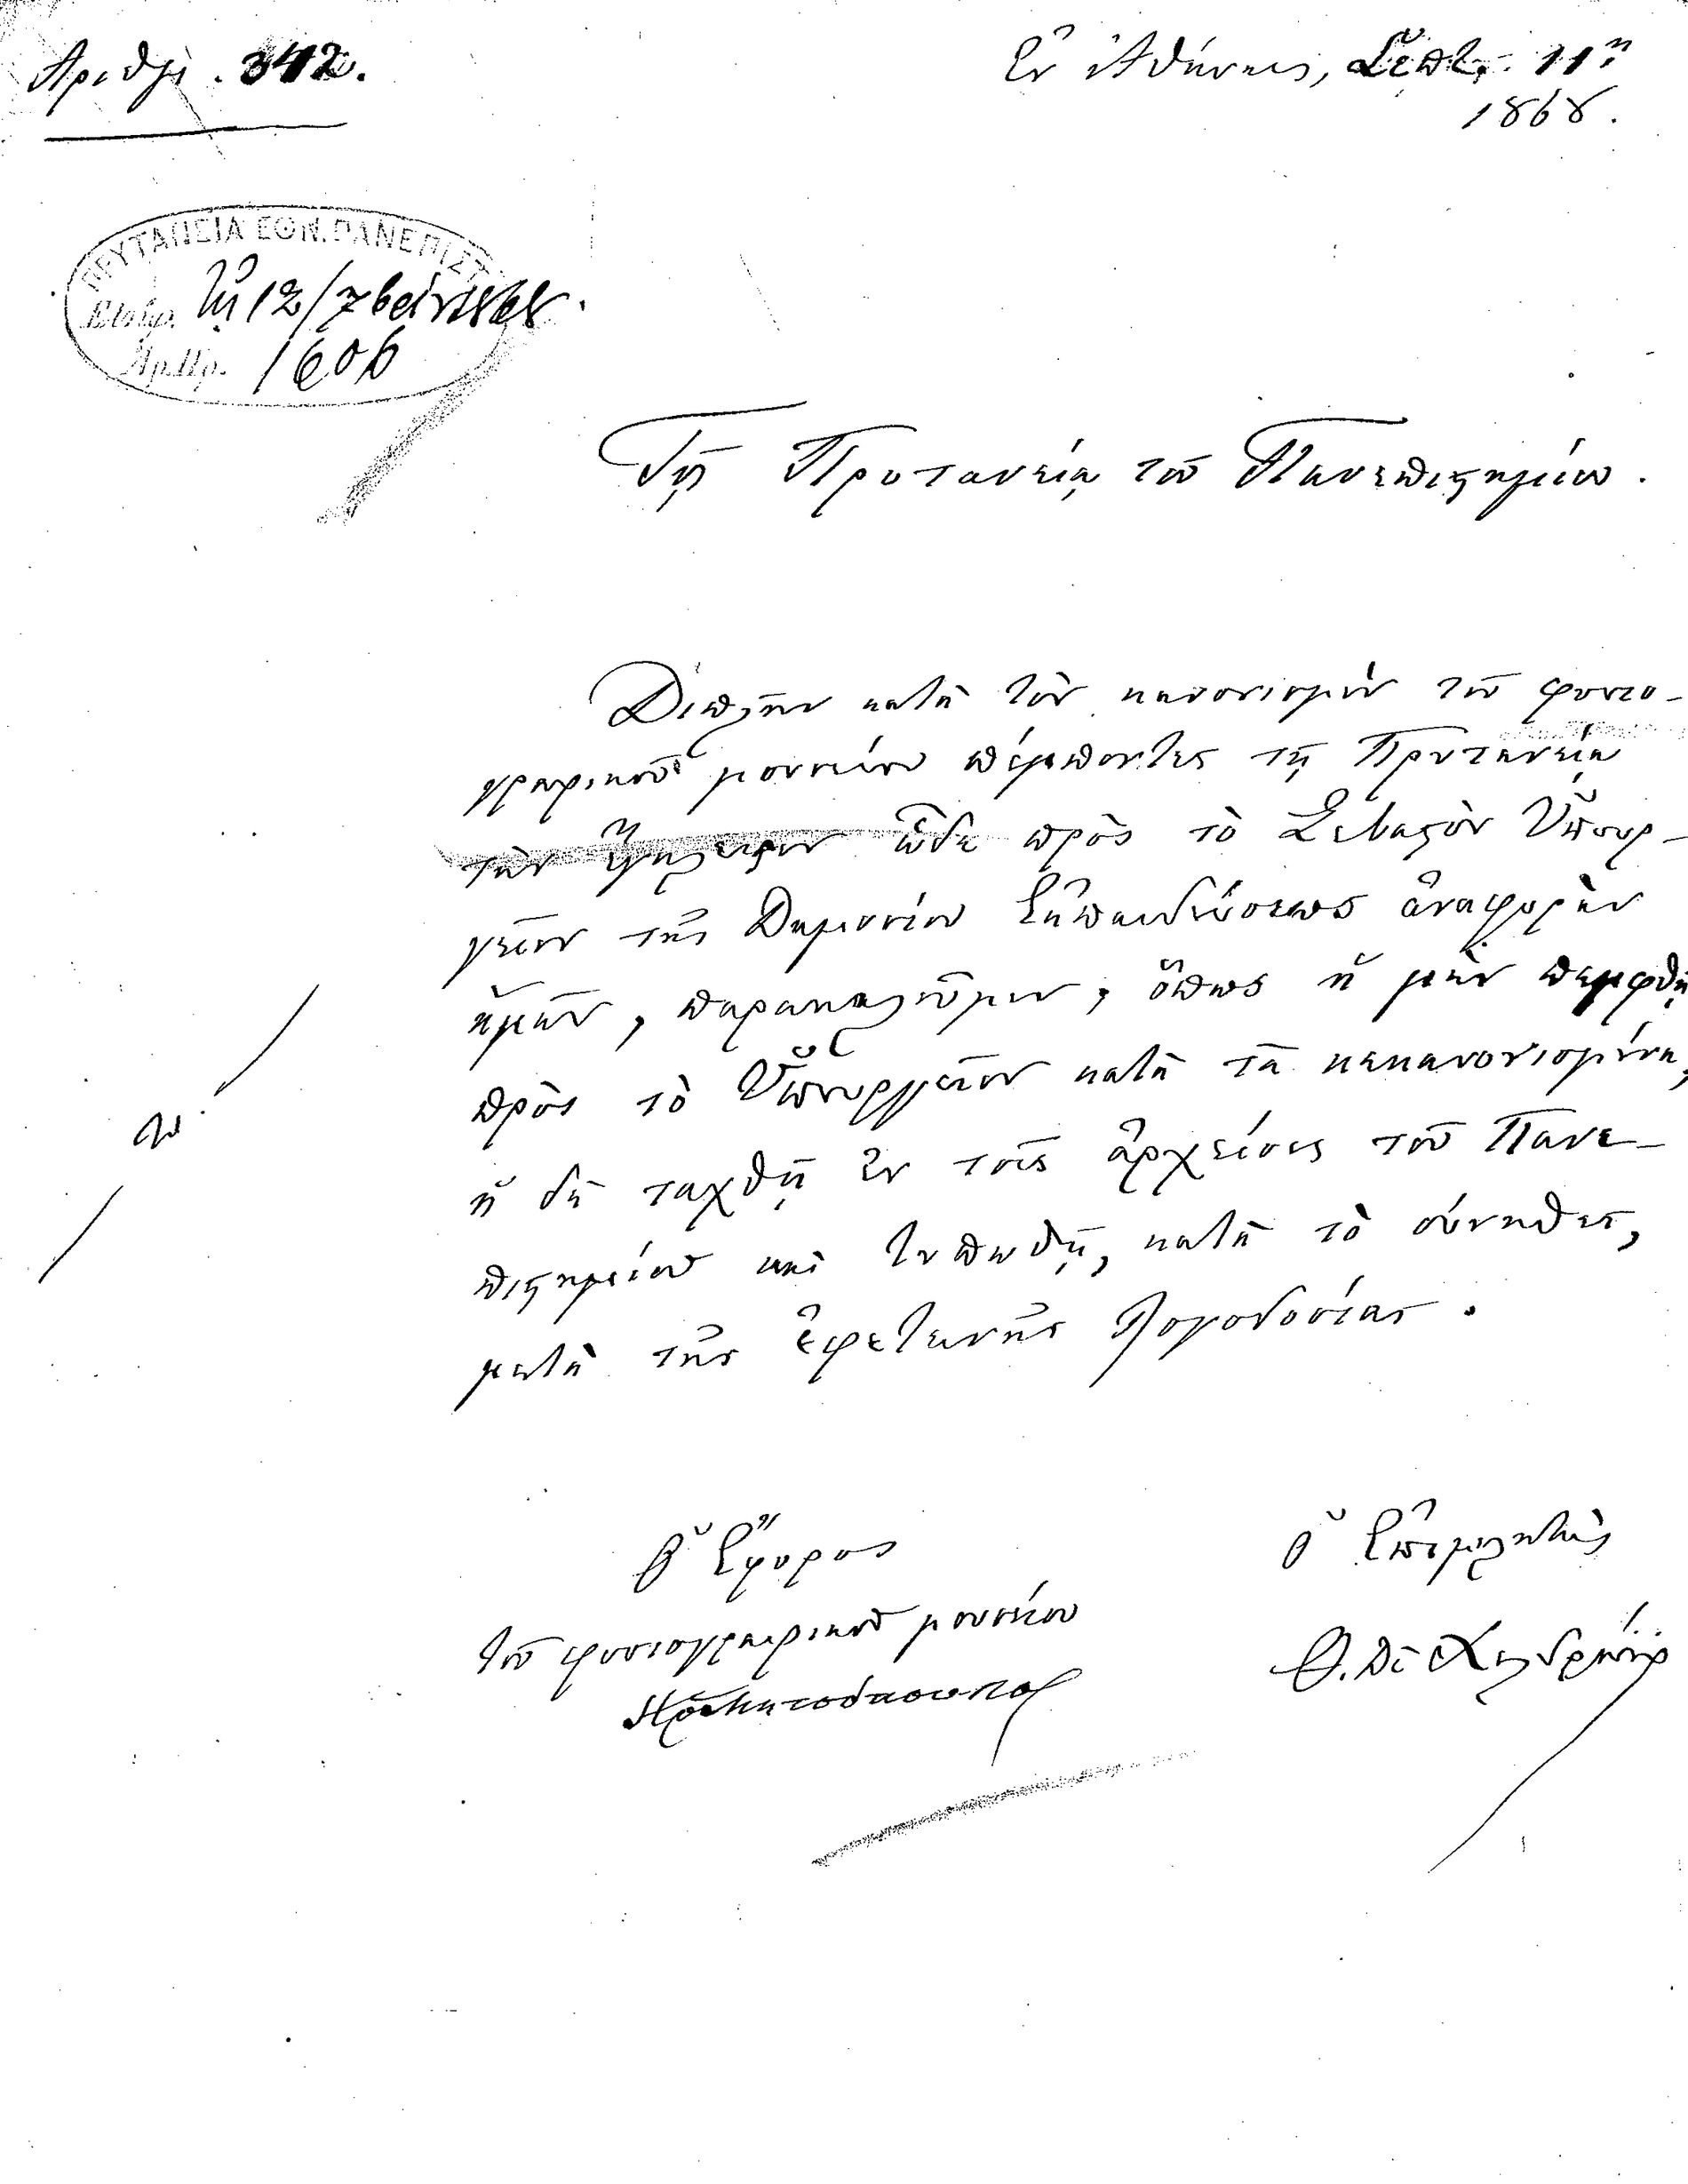 Ἀριθμ. 342.
Ἐν Ἀθήναις, Σεπτ. 11ῃ
1868.
ΠΡΥΤΑΝΕΙΑ ΕΘΝ. ΠΑΝΕΠΙΣΤ
Εἰσήχ. τῇ 12/7βρίου 1868.
Ἀρ. Πρ. 1606
Τῇ Πρυτανείᾳ τοῦ Πανεπιστημίου.
Διπλῆν κατὰ τὸν κανονισμὸν τοῦ φυσιο-
γραφικοῦ μουσείου πέμποντες τῇ Πρυτανείᾳ
τὴν ὧδε πρὸς τὸ Σεβαστὸν Ὑπουρ-
γεῖον τῆς Δημοσίου Ἐκπαιδεύσεως ἀναφορὰν
ἡμῶν, παρακαλοῦμεν, ὅπως ἡ μὲν πεμφθῇ
πρὸς τὸ Ὑπουργεῖον κατὰ τὰ κεκανονισμένα,
ἡ δὲ ταχθῇ ἐν τοῖς ἀρχείοις τοῦ Πανε-
πιστημίου καὶ τυπωθῇ, κατὰ τὸ σύνηθες,
μετὰ τῆς ἐφετεινῆς λογοδοσίας.
Ὁ Ἔφορος
τοῦ φυσιογραφικοῦ μουσείου
Ὁ Ἐπιμελητὴς
Θ. δὲ Χελδράιχ